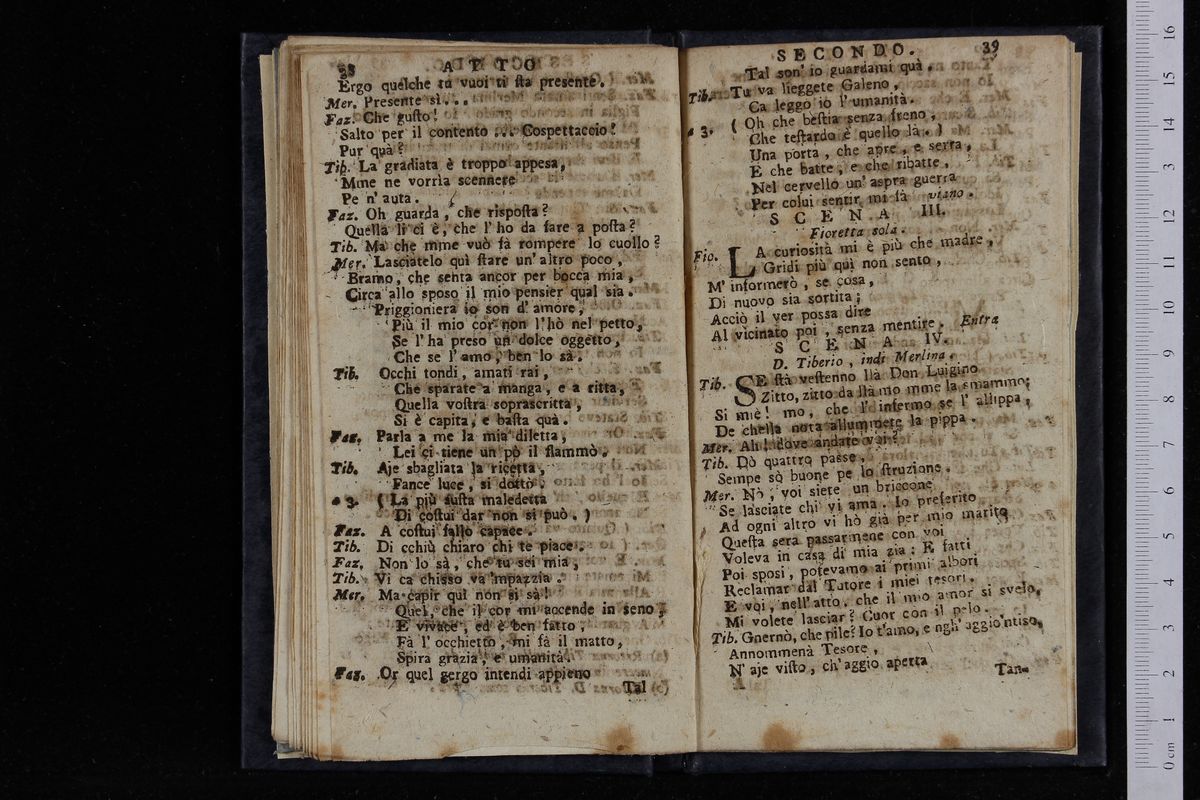 38 ATTO
Ergo quelche tu vuoi ti sta presente.
Mer. Presente sì...
Faz. Che gusto!
Salto per il contento ... Cospettaccio!
Pur quà?
Tib. La gradiata è troppo appesa,
Mme ne vorria scennere
Pe n' auta.
Faz. Oh guarda, che risposta?
Quella lì ci è, che l' ho da fare a posta?
Tib. Ma che mme vuò fà rompere lo cuollo?
Mer. Lasciatelo quì stare un' altro poco,
Bramo, che senta ancor per bocca mia,
Circa allo sposo il mio pensier qual sia.
Priggioniera io son d' amore,
Più il mio cor non l' hò nel petto,
Se l' ha preso un dolce oggetto,
Che se l' amo, ben lo sà.
Tib. Occhi tondi, amati rai,
Che sparate a manga, e a ritta,
Quella vostra soprascritta,
Si è capita, e basta quà.
Faz. Parla a me la mia diletta,
Lei ci tiene un pò il flammò.
Tib. Aje sbagliata la ricetta,
Fance luce, si dottò.
a 3. (La più susta maledetta
Di costui dar non si può.)
Faz. A costui fallo capace.
Tib. Di cchiù chiaro chi te piace.
Faz. Non lo sà, che tu sei mia,
Tib. Vi ca chisso va mpazzia.
Mer. Ma capir quì non si sà!
Quel, che il cor mi accende in seno,
E vivace, ed è ben fatto,
Fà l' occhietto, mi fà il matto,
Spira grazia, e umanità.
Faz. Or quel gergo intendi appieno
Tal
SECONDO. 39
Tal son' io guardami quà.
Tib. Tu va lieggete Galeno,
Ca leggo io l' umanità.
a 3. (Oh che bestia senza freno,
Che testardo è quello là.)
Una porta, che apre, e serra,
E che batte, e che ribatte,
Nel cervello un' aspra guerra
Per colui sentir mi fà viano.
SCENA III.
Fioretta sola.
Fio. LA curiosità mi è più che madre,
Gridi più quì non sento,
M' informerò, se cosa,
Di nuovo sia sortita;
Acciò il ver possa dire
Al vicinato poi, senza mentire. Entra
SCENA IV.
D. Tiberio, indi Merlina.
Tib. SE stà vestenno llà Don Luigino
Zitto, zitto da llà mo mme la smammo;
Si miè! mo, che l' infermo se l' allippa,
De chella nota allummete la pippa.
Mer. Ah! dove andate voi?
Tib. Dò quattro passe,
Sempe sò buone pe lo struzione.
Mer. Nò, voi siete un briccone
Se lasciate chi vi ama. Io preferito
Ad ogni altro vi hò già per mio marito
Questa sera passarmene con voi
Voleva in casa di mia zia: E fatti
Poi sposi, potevamo ai primi albori
Reclamar dal Tutore i miei tesori.
E voi, nell' atto, che il mio amor si svela,
Mi volete lasciar? Cuor con il pelo.
Tib. Gnernò, che pile? Io t'amo, e ngh' aggio'ntiso,
Annommenà Tesore,
N' aje visto, ch' aggio aperta
Tan-